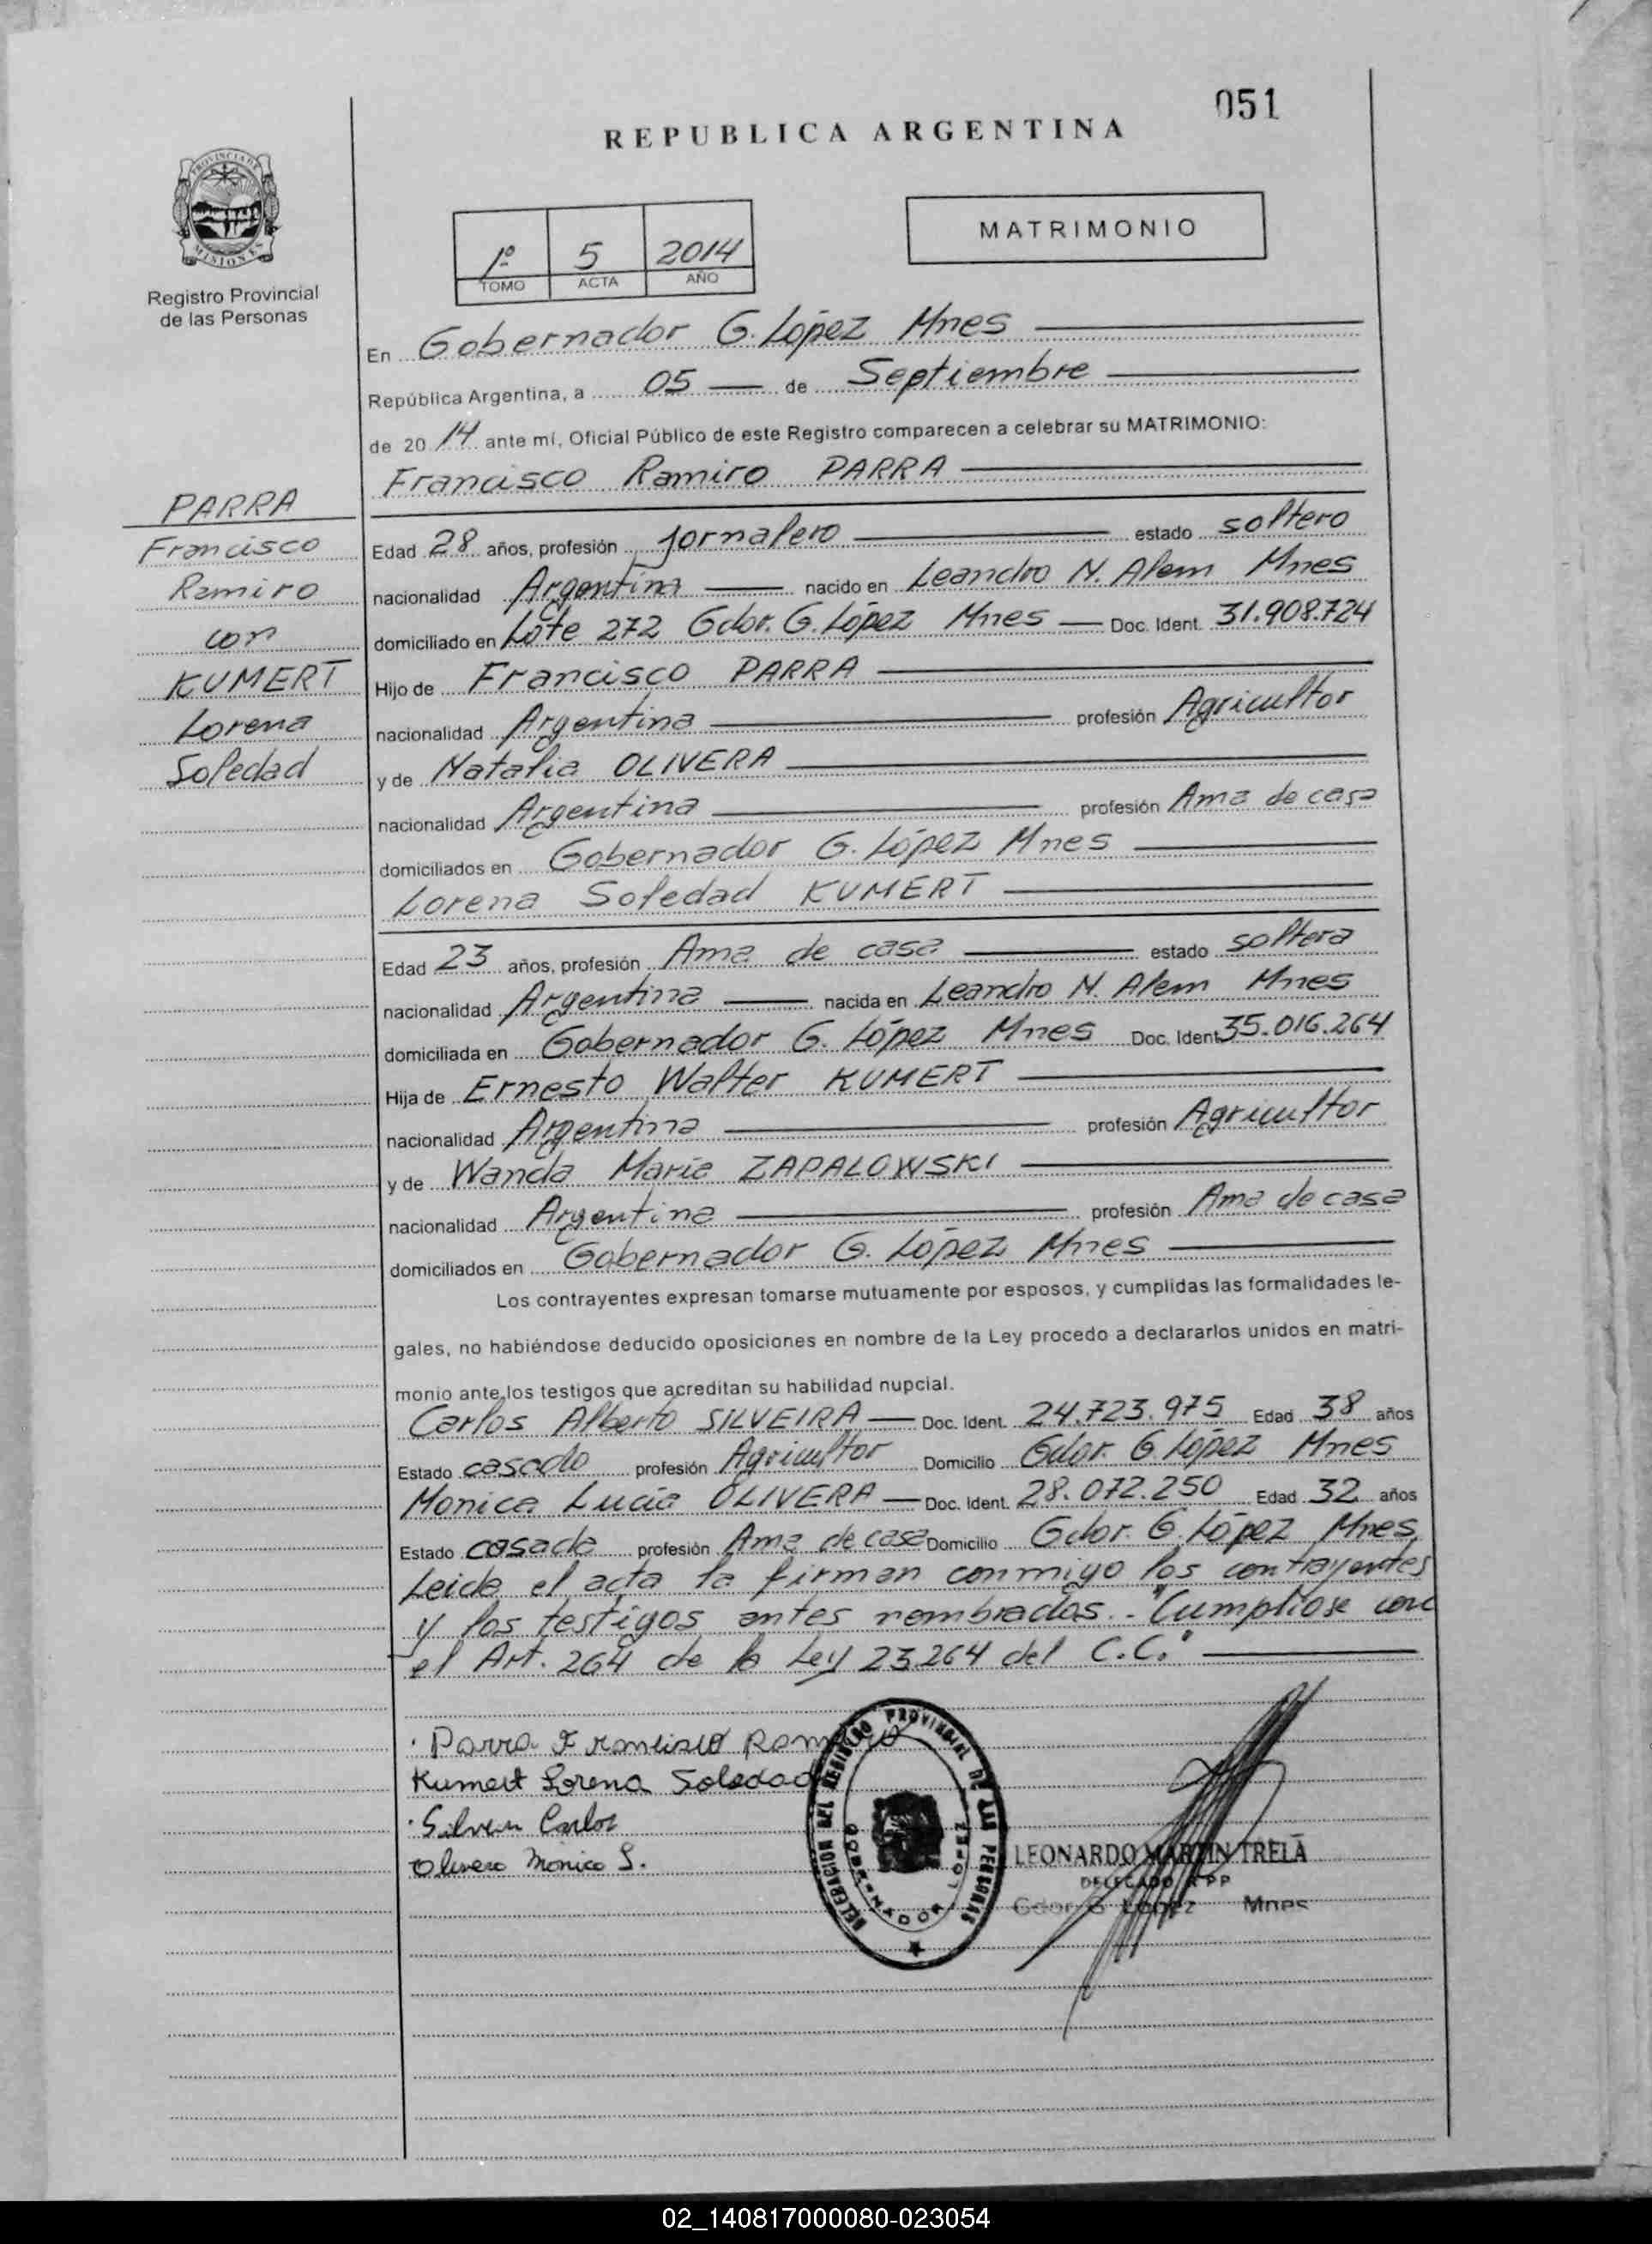 051
REPUBLICA ARGENTINA
PROVINCIA DE
MISIONES
Registro Provincial
de las Personas
1º 5 2014
TOMO ACTA AÑO
MATRIMONIO
En Gobernador G. López Mnes
República Argentina, a 05 de Septiembre
de 2014 ante mí, Oficial Público de este Registro comparecen a celebrar su MATRIMONIO:
Francisco Ramiro PARRA
PARRA
Francisco
Ramiro
con
KUMERT
Lorena
Soledad
Edad 28 años, profesión Jornalero estado soltero
nacionalidad Argentina nacido en Leandro N. Alem Mnes
domiciliado en Lote 272 Gdor. G. López Mnes Doc. Ident. 31.908.724
Hijo de Francisco PARRA
nacionalidad Argentina profesión Agricultor
y de Natalia OLIVERA
nacionalidad Argentina profesión Ama de casa
domiciliados en Gobernador G. López Mnes
Lorena Soledad KUMERT
Edad 23 años, profesión Ama de casa estado soltera
nacionalidad Argentina nacida en Leandro N. Alem Mnes
domiciliada en Gobernador G. López Mnes Doc. Ident 35.016.264
Hija de Ernesto Walter KUMERT
nacionalidad Argentina profesión Agricultor
y de Wanda Maria ZAPALOWSKI
nacionalidad Argentina profesión Ama de casa
domiciliados en Gobernador G. López Mnes
Los contrayentes expresan tomarse mutuamente por esposos, y cumplidas las formalidades le-
gales, no habiéndose deducido oposiciones en nombre de la Ley procedo a declararlos unidos en matri-
monio ante los testigos que acreditan su habilidad nupcial.
Carlos Alberto SILVEIRA Doc. Ident. 24.723.975 Edad 38 años
Estado casado profesión Agricultor Domicilio Gdor. G. López Mnes
Monica Lucia OLIVERA Doc. Ident. 28.072.250 Edad 32 años
Estado casada profesión Ama de casa Domicilio Gdor. G. López Mnes
Leida el acta la firman conmigo los contrayentes
y los testigos antes nombrados.- "Cumpliose con
el Art. 264 de la Ley 23264 del C.C."
Parra Francisco Ramiro
Kumert Lorena Soledad
Silveira Carlos
Olivera Monica L.
DELEGACION DEL REGISTRO PROVINCIAL DE LAS PERSONAS
GOBERNADOR LOPEZ
LEONARDO MARTIN TRELA
DELEGADO R P P
Gdor G López Mnes
02_140817000080-023054